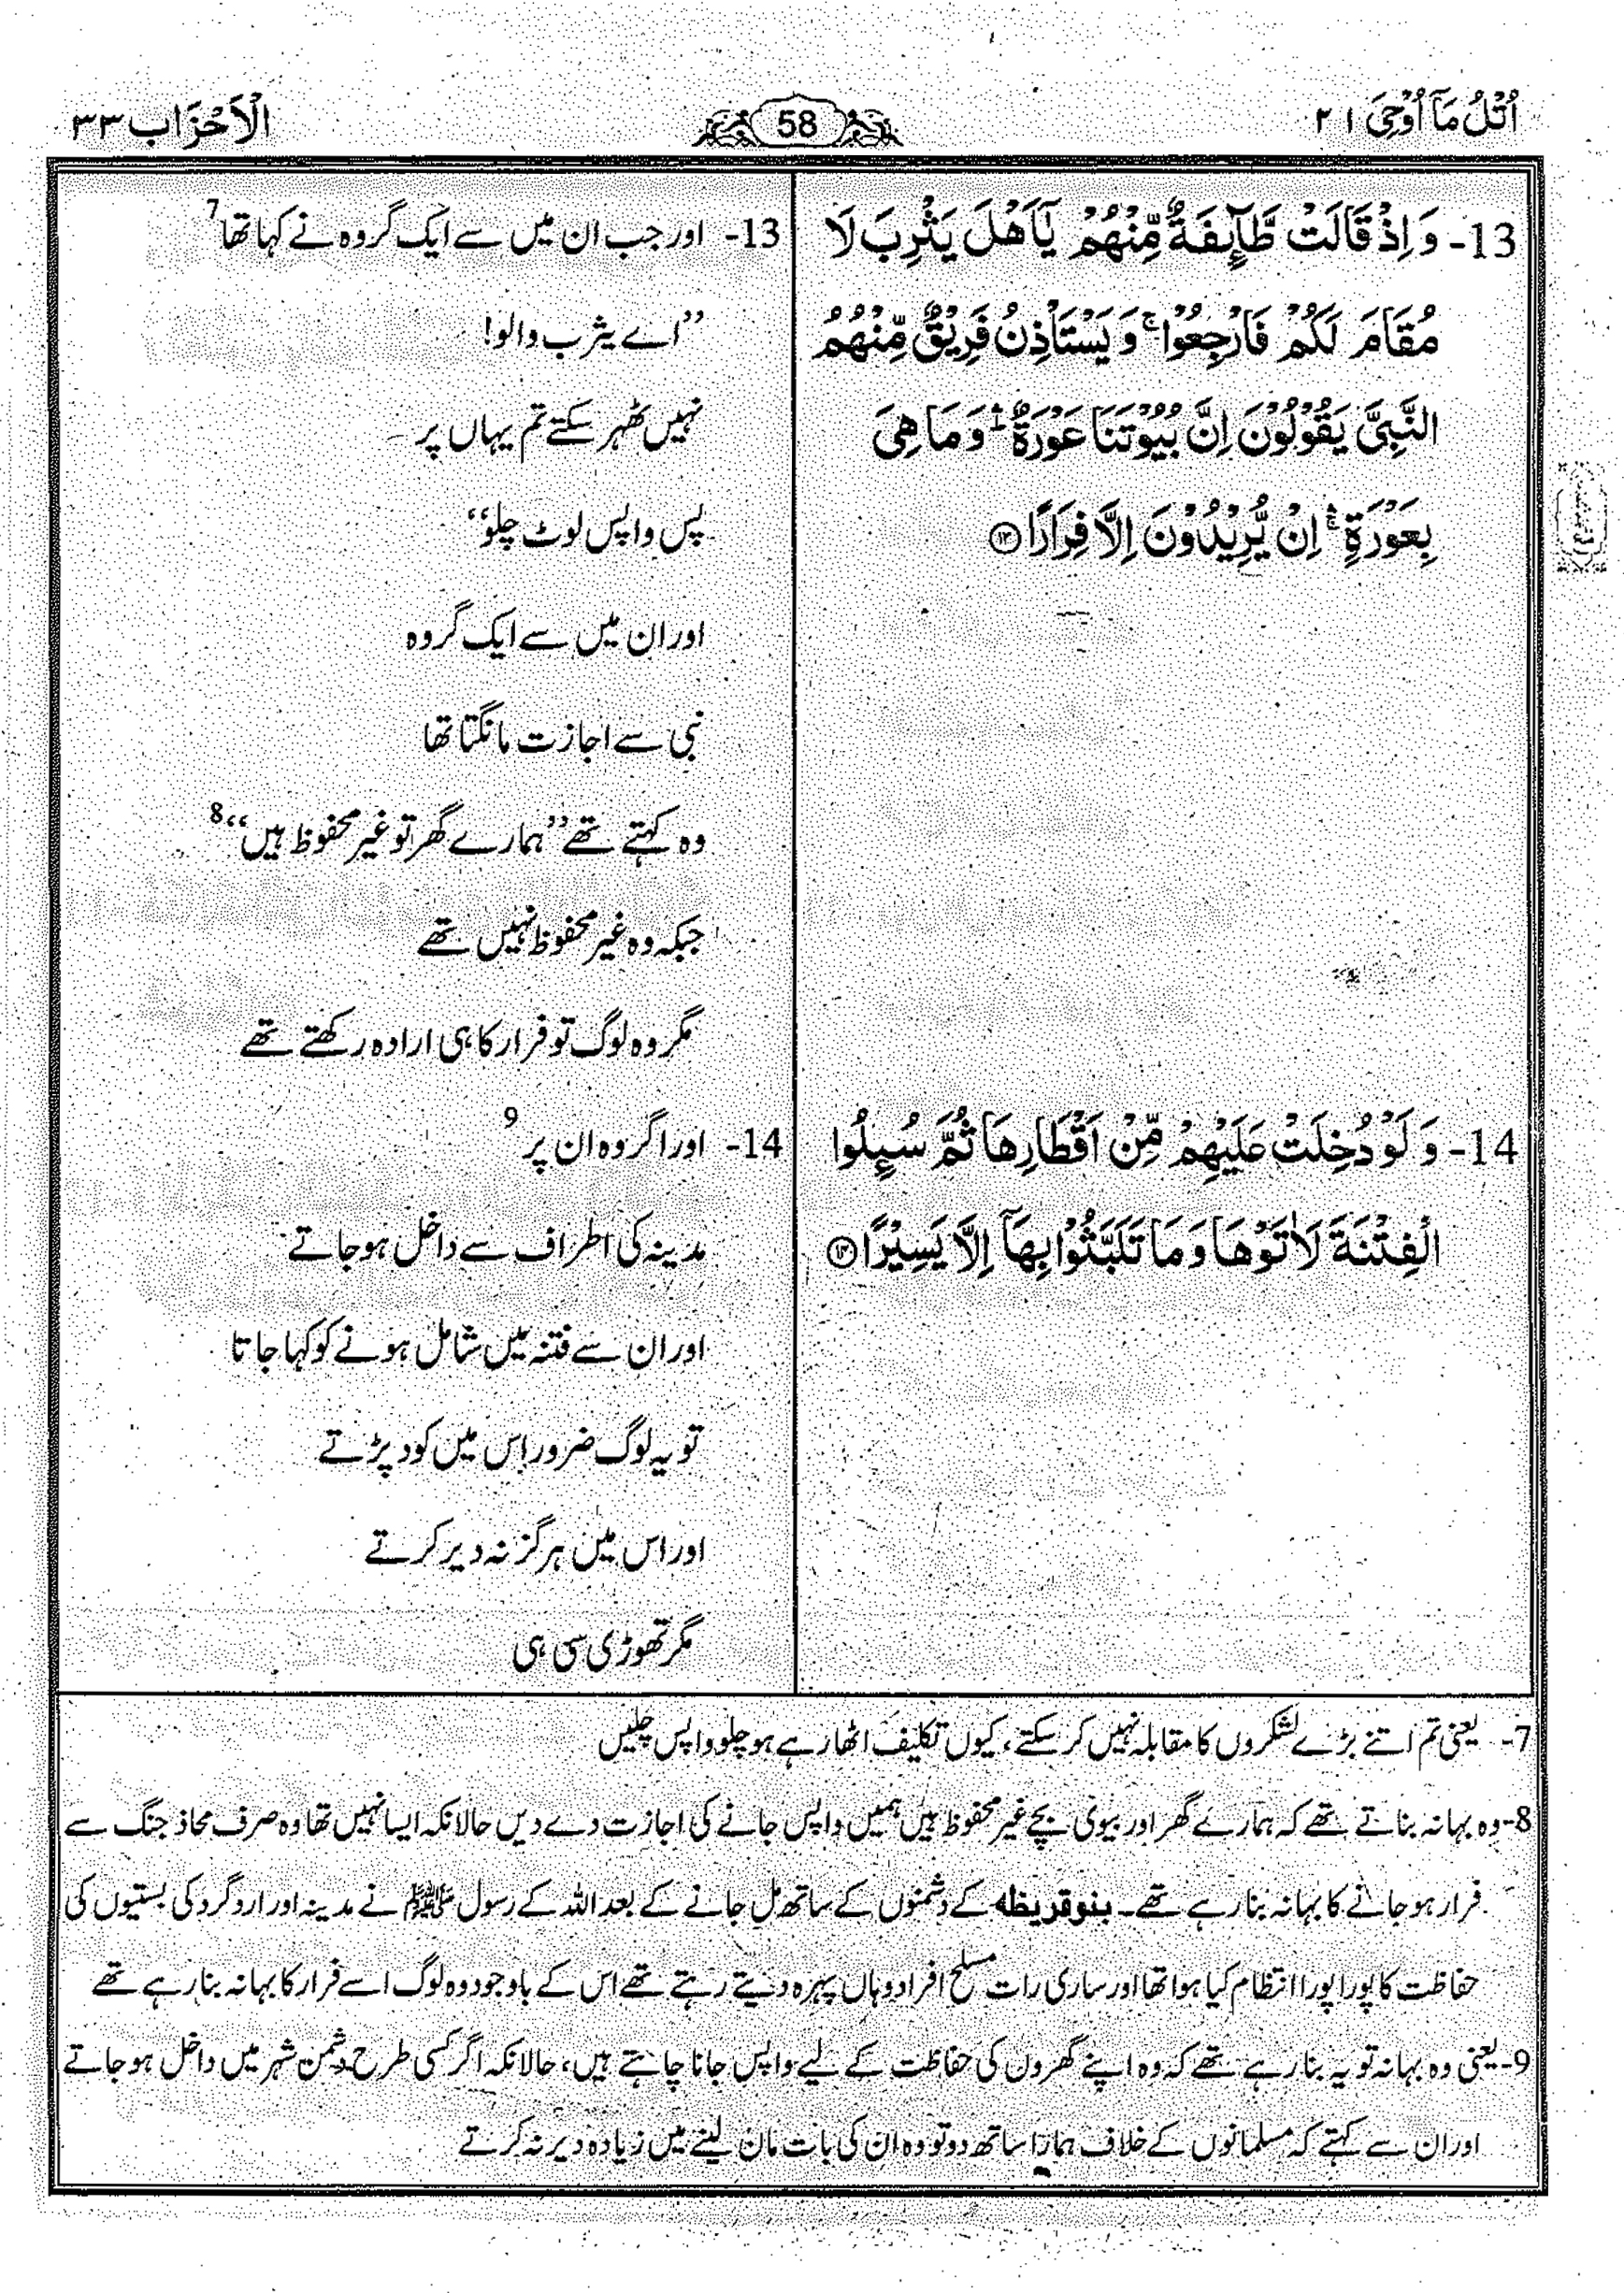 اُتْلُ مَآ اُوْحِیَ ۲۱
58
الْاَحْزَاب ۳۳
13- وَ اِذْ قَالَتْ طَّآىِٕفَةٌ مِّنْهُمْ یٰۤاَهْلَ یَثْرِبَ لَا
مُقَامَ لَكُمْ فَارْجِعُوْا ۚ وَ یَسْتَاْذِنُ فَرِیْقٌ مِّنْهُمُ
النَّبِیَّ یَقُوْلُوْنَ اِنَّ بُیُوْتَنَا عَوْرَةٌ ۛؕ وَ مَا هِیَ
بِعَوْرَةٍ ۛۚ اِنْ یُّرِیْدُوْنَ اِلَّا فِرَارًا ۝۱۳
13- اور جب ان میں سے ایک گروہ نے کہا تھا 7
’’اے یثرب والو!
نہیں ٹھہر سکتے تم یہاں پر
پس واپس لوٹ چلو‘‘
اور ان میں سے ایک گروہ
نبی سے اجازت مانگتا تھا
وہ کہتے تھے ’’ہمارے گھر تو غیر محفوظ ہیں‘‘ 8
جبکہ وہ غیر محفوظ نہیں تھے
مگر وہ لوگ تو فرار کا ہی ارادہ رکھتے تھے
14- وَ لَوْ دُخِلَتْ عَلَیْهِمْ مِّنْ اَقْطَارِهَا ثُمَّ سُىِٕلُوا
الْفِتْنَةَ لَاٰتَوْهَا وَ مَا تَلَبَّثُوْا بِهَاۤ اِلَّا یَسِیْرًا ۝۱۴
14- اور اگر وہ ان پر 9
مدینہ کی اطراف سے داخل ہو جاتے
اور ان سے فتنہ میں شامل ہونے کو کہا جاتا
تو یہ لوگ ضرور اس میں کود پڑتے
اور اس میں ہرگز نہ دیر کرتے
مگر تھوڑی سی ہی
7- یعنی تم اتنے بڑے لشکروں کا مقابلہ نہیں کر سکتے، کیوں تکلیف اٹھا رہے ہو چلو واپس چلیں
8- وہ بہانہ بناتے تھے کہ ہمارے گھر اور بیوی بچے غیر محفوظ ہیں ہمیں واپس جانے کی اجازت دے دیں حالانکہ ایسا نہیں تھا وہ صرف محاذ جنگ سے
فرار ہو جانے کا بہانہ بنا رہے تھے۔ بنو قریظہ کے دشمنوں کے ساتھ مل جانے کے بعد اللہ کے رسول ﷺ نے مدینہ اور اردگرد کی بستیوں کی
حفاظت کا پورا پورا انتظام کیا ہوا تھا اور ساری رات مسلح افراد وہاں پہرہ دیتے رہتے تھے اس کے باوجود وہ لوگ اسے فرار کا بہانہ بنا رہے تھے
9- یعنی وہ بہانہ تو یہ بنا رہے تھے کہ وہ اپنے گھروں کی حفاظت کے لیے واپس جانا چاہتے ہیں، حالانکہ اگر کسی طرح دشمن شہر میں داخل ہو جاتے
اور ان سے کہتے کہ مسلمانوں کے خلاف ہمارا ساتھ دو تو وہ ان کی بات مان لینے میں زیادہ دیر نہ کرتے